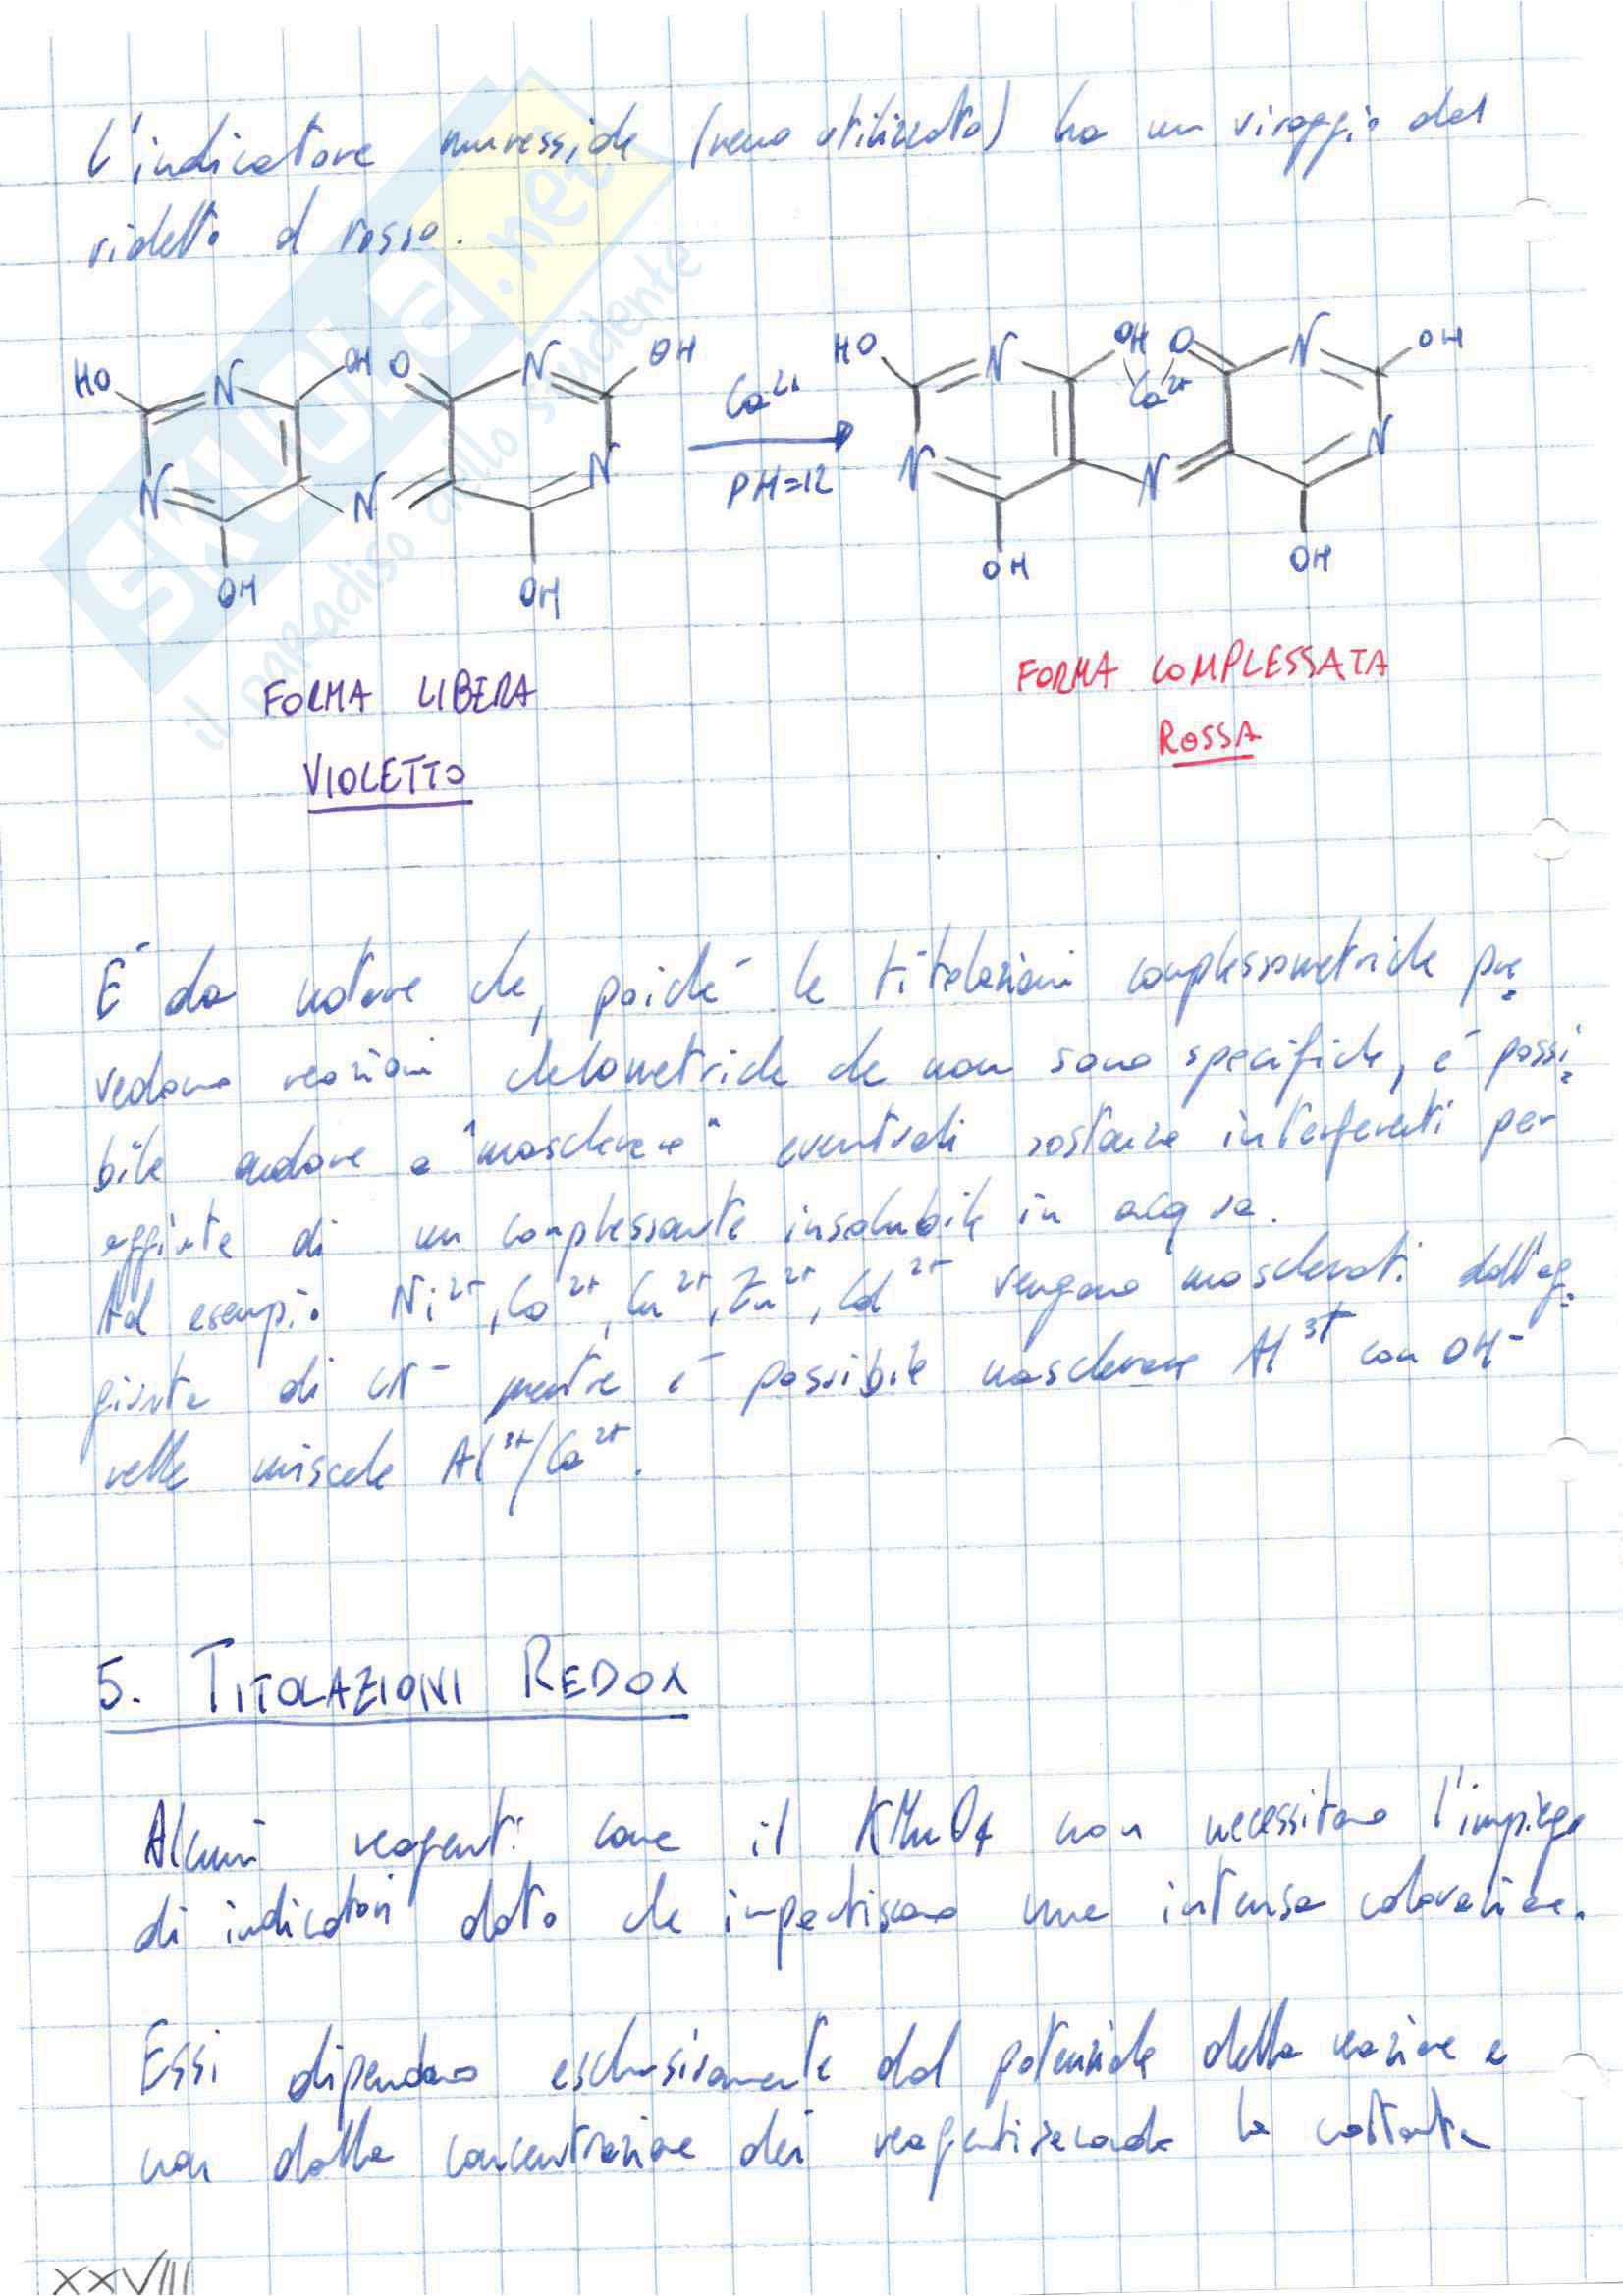 L'indicatore muresside (meno utilizzato) ha un viraggio dal
violetto al rosso.
HO N OH O N OH Ca²⁺ HO N OH O N OH
Ca²⁺
N N N PH=12 N N N
OH OH OH OH
FORMA LIBERA FORMA COMPLESSATA
VIOLETTO ROSSA
É da notare che, poiché le titolazioni complessometriche pre
vedono reazioni chelometriche che non sono specifiche, é possi
bile andare a "mascherare" eventuali sostanze interferenti per
aggiunta di un complessante insolubile in acqua.
Ad esempio Ni²⁺, Co²⁺, Cu²⁺, Zn²⁺, Cd²⁺ vengono mascherati dall'ag
giunta di CN⁻ mentre é possibile mascherare Al³⁺ con OH⁻
nelle miscele Al³⁺/Ca²⁺.
5. TITOLAZIONI REDOX
Alcuni reagenti come il KMnO4 non necessitano l'impiego
di indicatori dato che impartiscono una intensa colorazione.
Essi dipendono esclusivamente dal potenziale della reazione e
non dalla concentrazione dei reagenti secondo la costante
XXVIII
SKUOLA.net
il paradiso dello studente